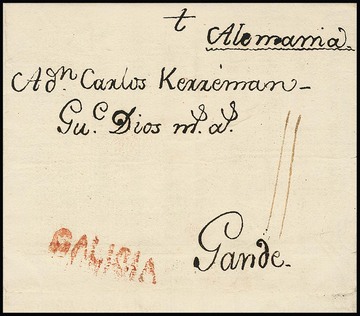 t
Alemania.
A Dn. Carlos Kerréman
Gu.e Dios ms. as.
Gande.
GALICIA